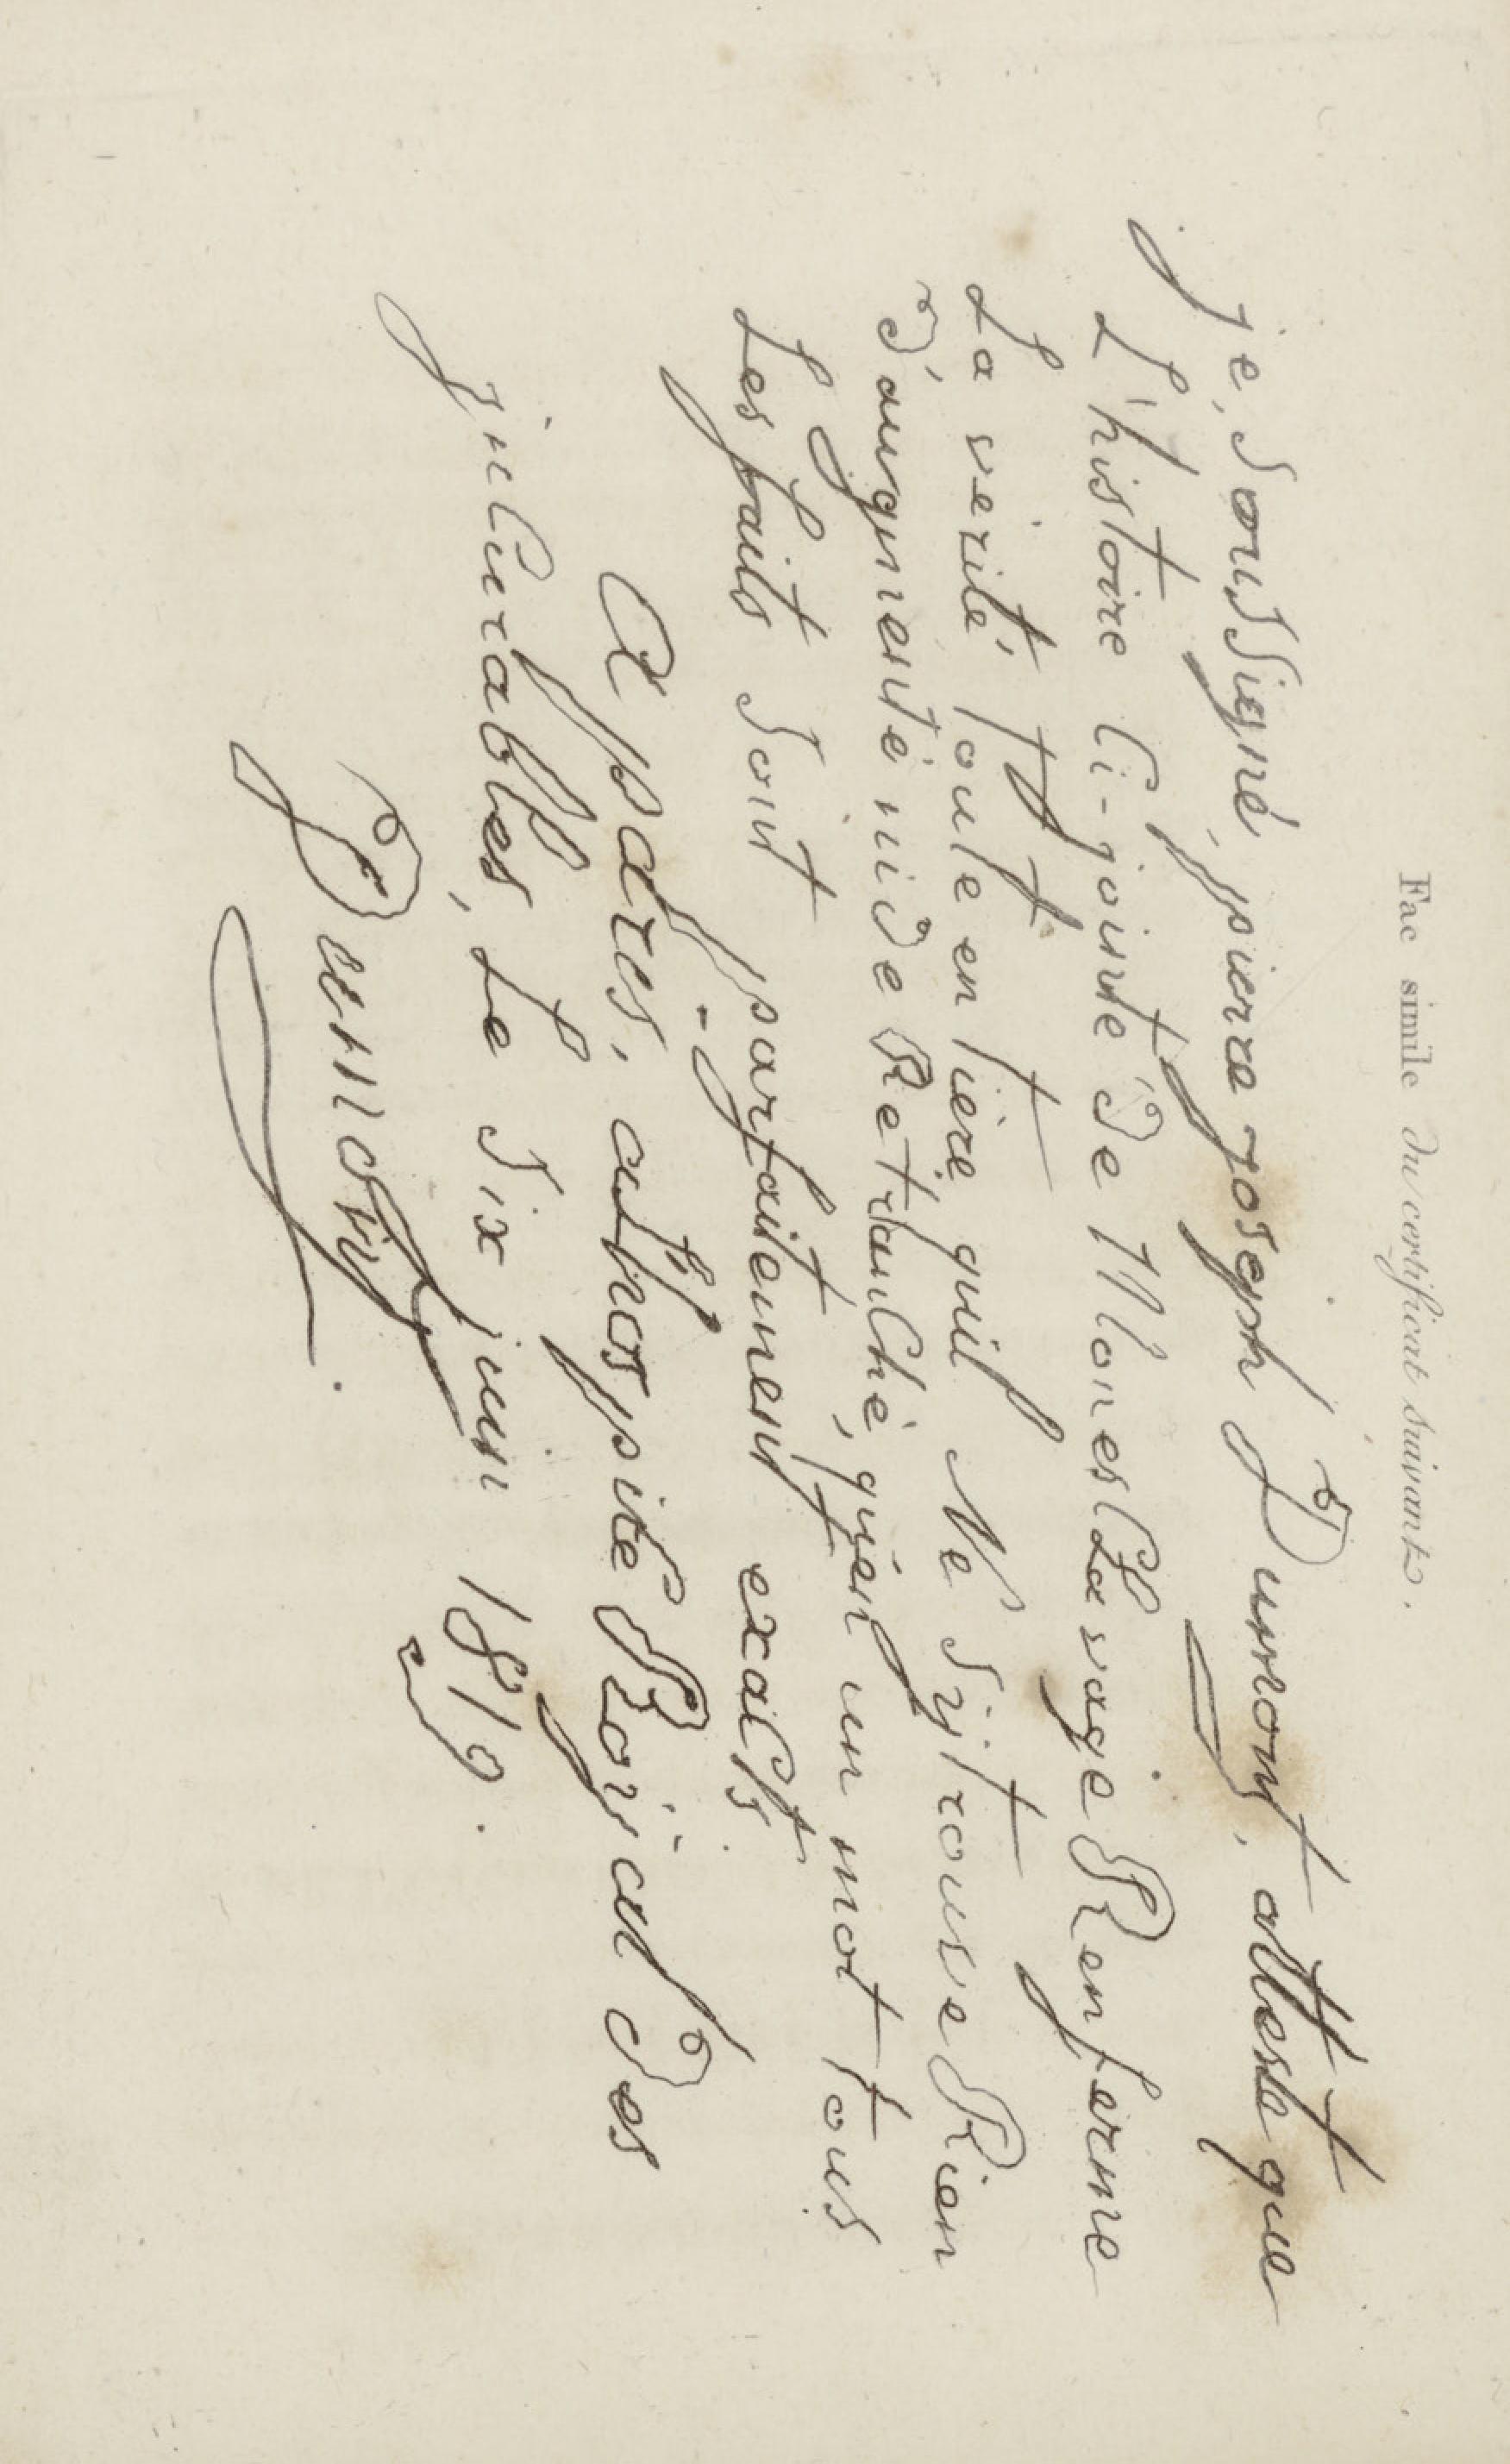 Fac simile du certificat suivant.
je, Soussigné, pierre joseph Dumont, atteste que
L'histoire Ci-jointe de Mon esClavage Renferme
La verité toute entiere, quil Ne Sy trouve Rien
d'augmenté ni de RetranChé, qu'en un mot tous
Les faits Sont parfaitement exaCts.
A paris, auhospite Royial des
jnCurables, Le Six juin 1819.
Dumont